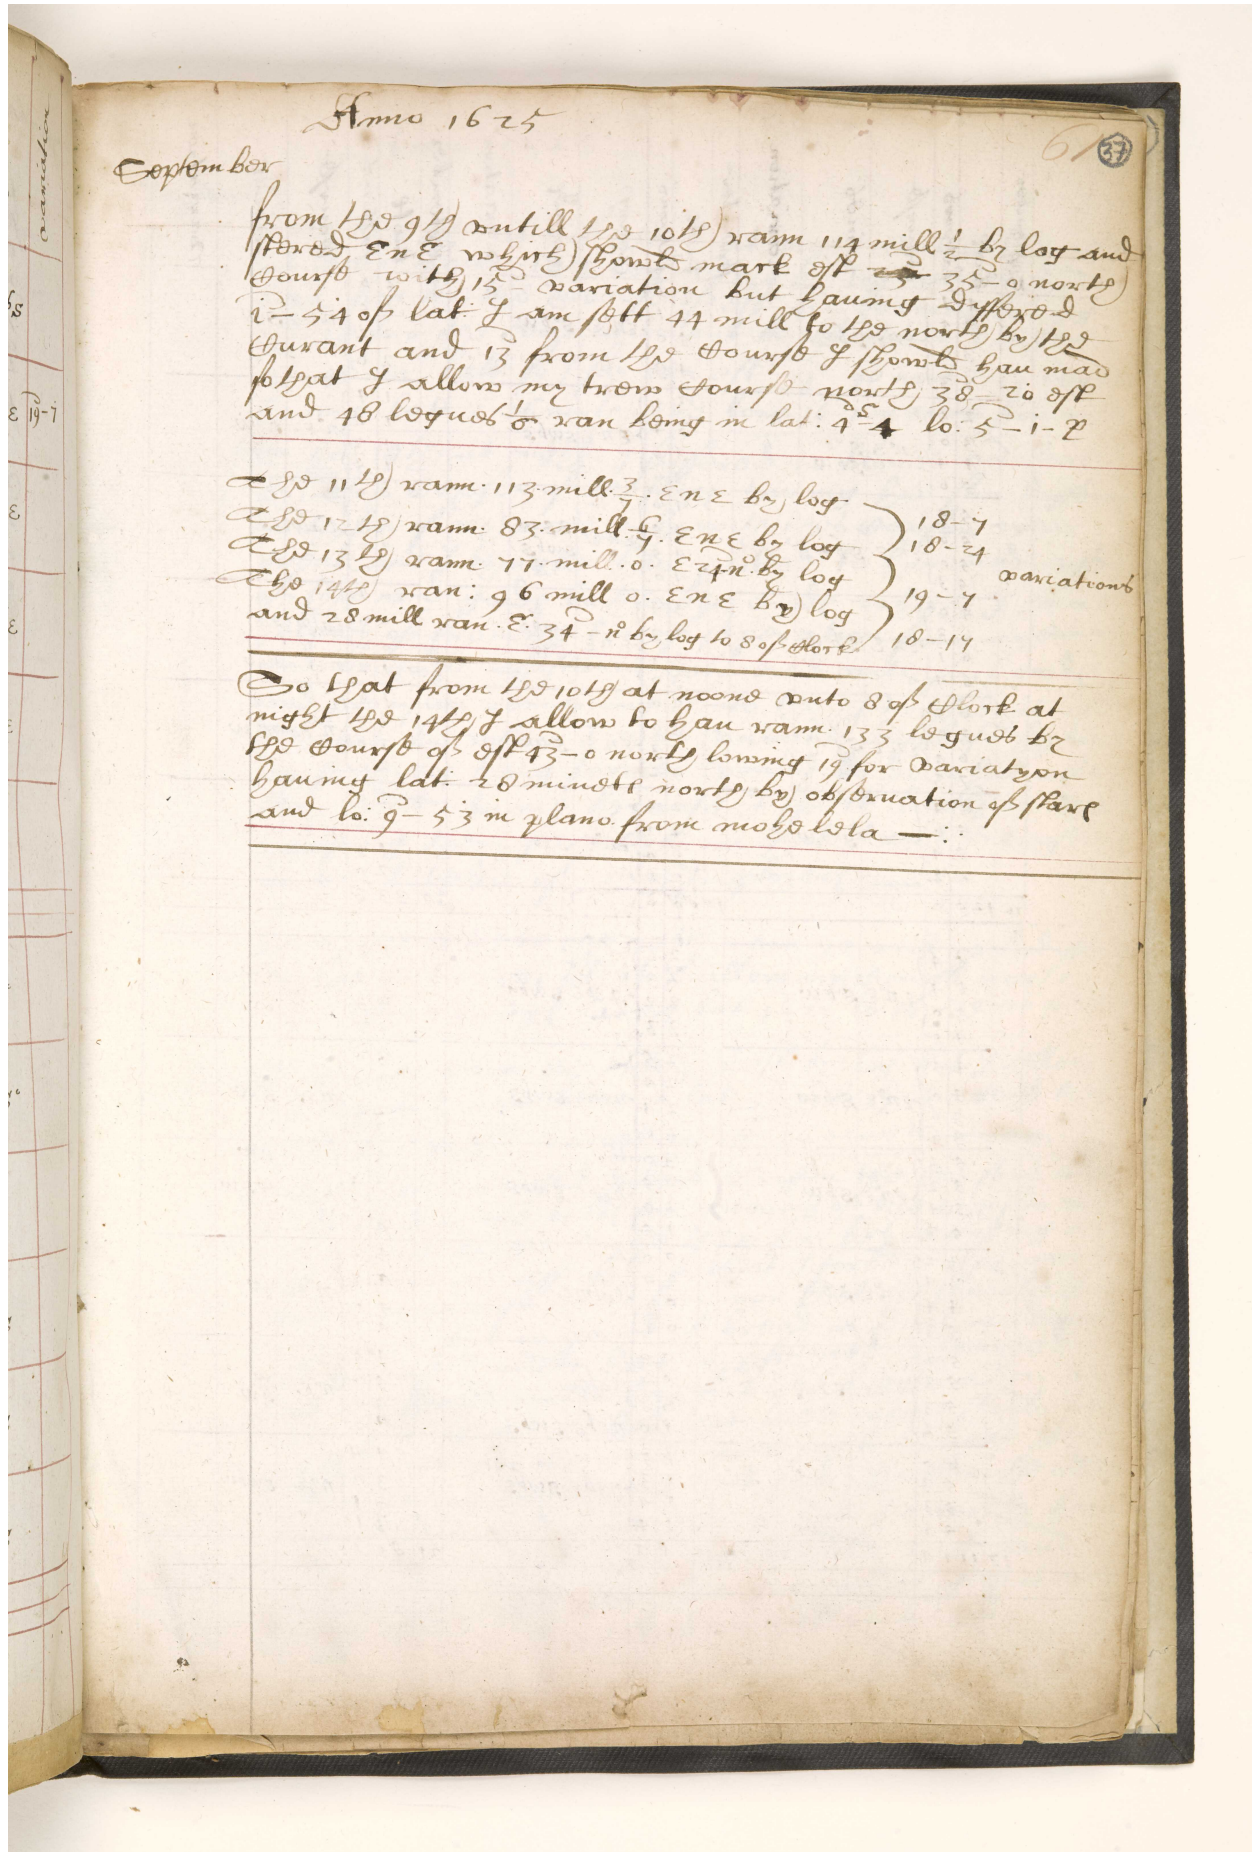 variation
Anno 1625
61 37
September
from the 9th vntill the 10th rann 114 mill 1/2 by log and
stered EnE which showld mack est 35 - 0 north
Course with 15 - variation but hauing dyffered
1 - 54 of lat: I am sett 44 mill to the north by the
Curant and 13 from the Course I showld hau mad
so that I allow my trew Course north 38 - 20 est
and 48 legues 1/6 ran being in lat: 4 - 4 lo: 5 - 1 -
The 11th rann. 113. mill. 3/7. EnE by log
The 12th rann. 83. mill. 6/7. EnE by log
The 13th rann. 77. mill. 0. E 24 - n° by log
The 14th ran: 96 mill 0. EnE by log
and 28 mill ran. E. 34 - n° by log to 8 of Clock
18 - 7
18 - 24
19 - 7
18 - 17
variations
So that from the 10th at noone vnto 8 of Clock at
night the 14th I allow to hau rann. 133 legues by
the Course of est 43 - 0 north lowing 19 for variatyon
hauing lat: 28 minets north by obseruation of stars
and lo: 9 - 53 in plano from mohelela —:
19-7